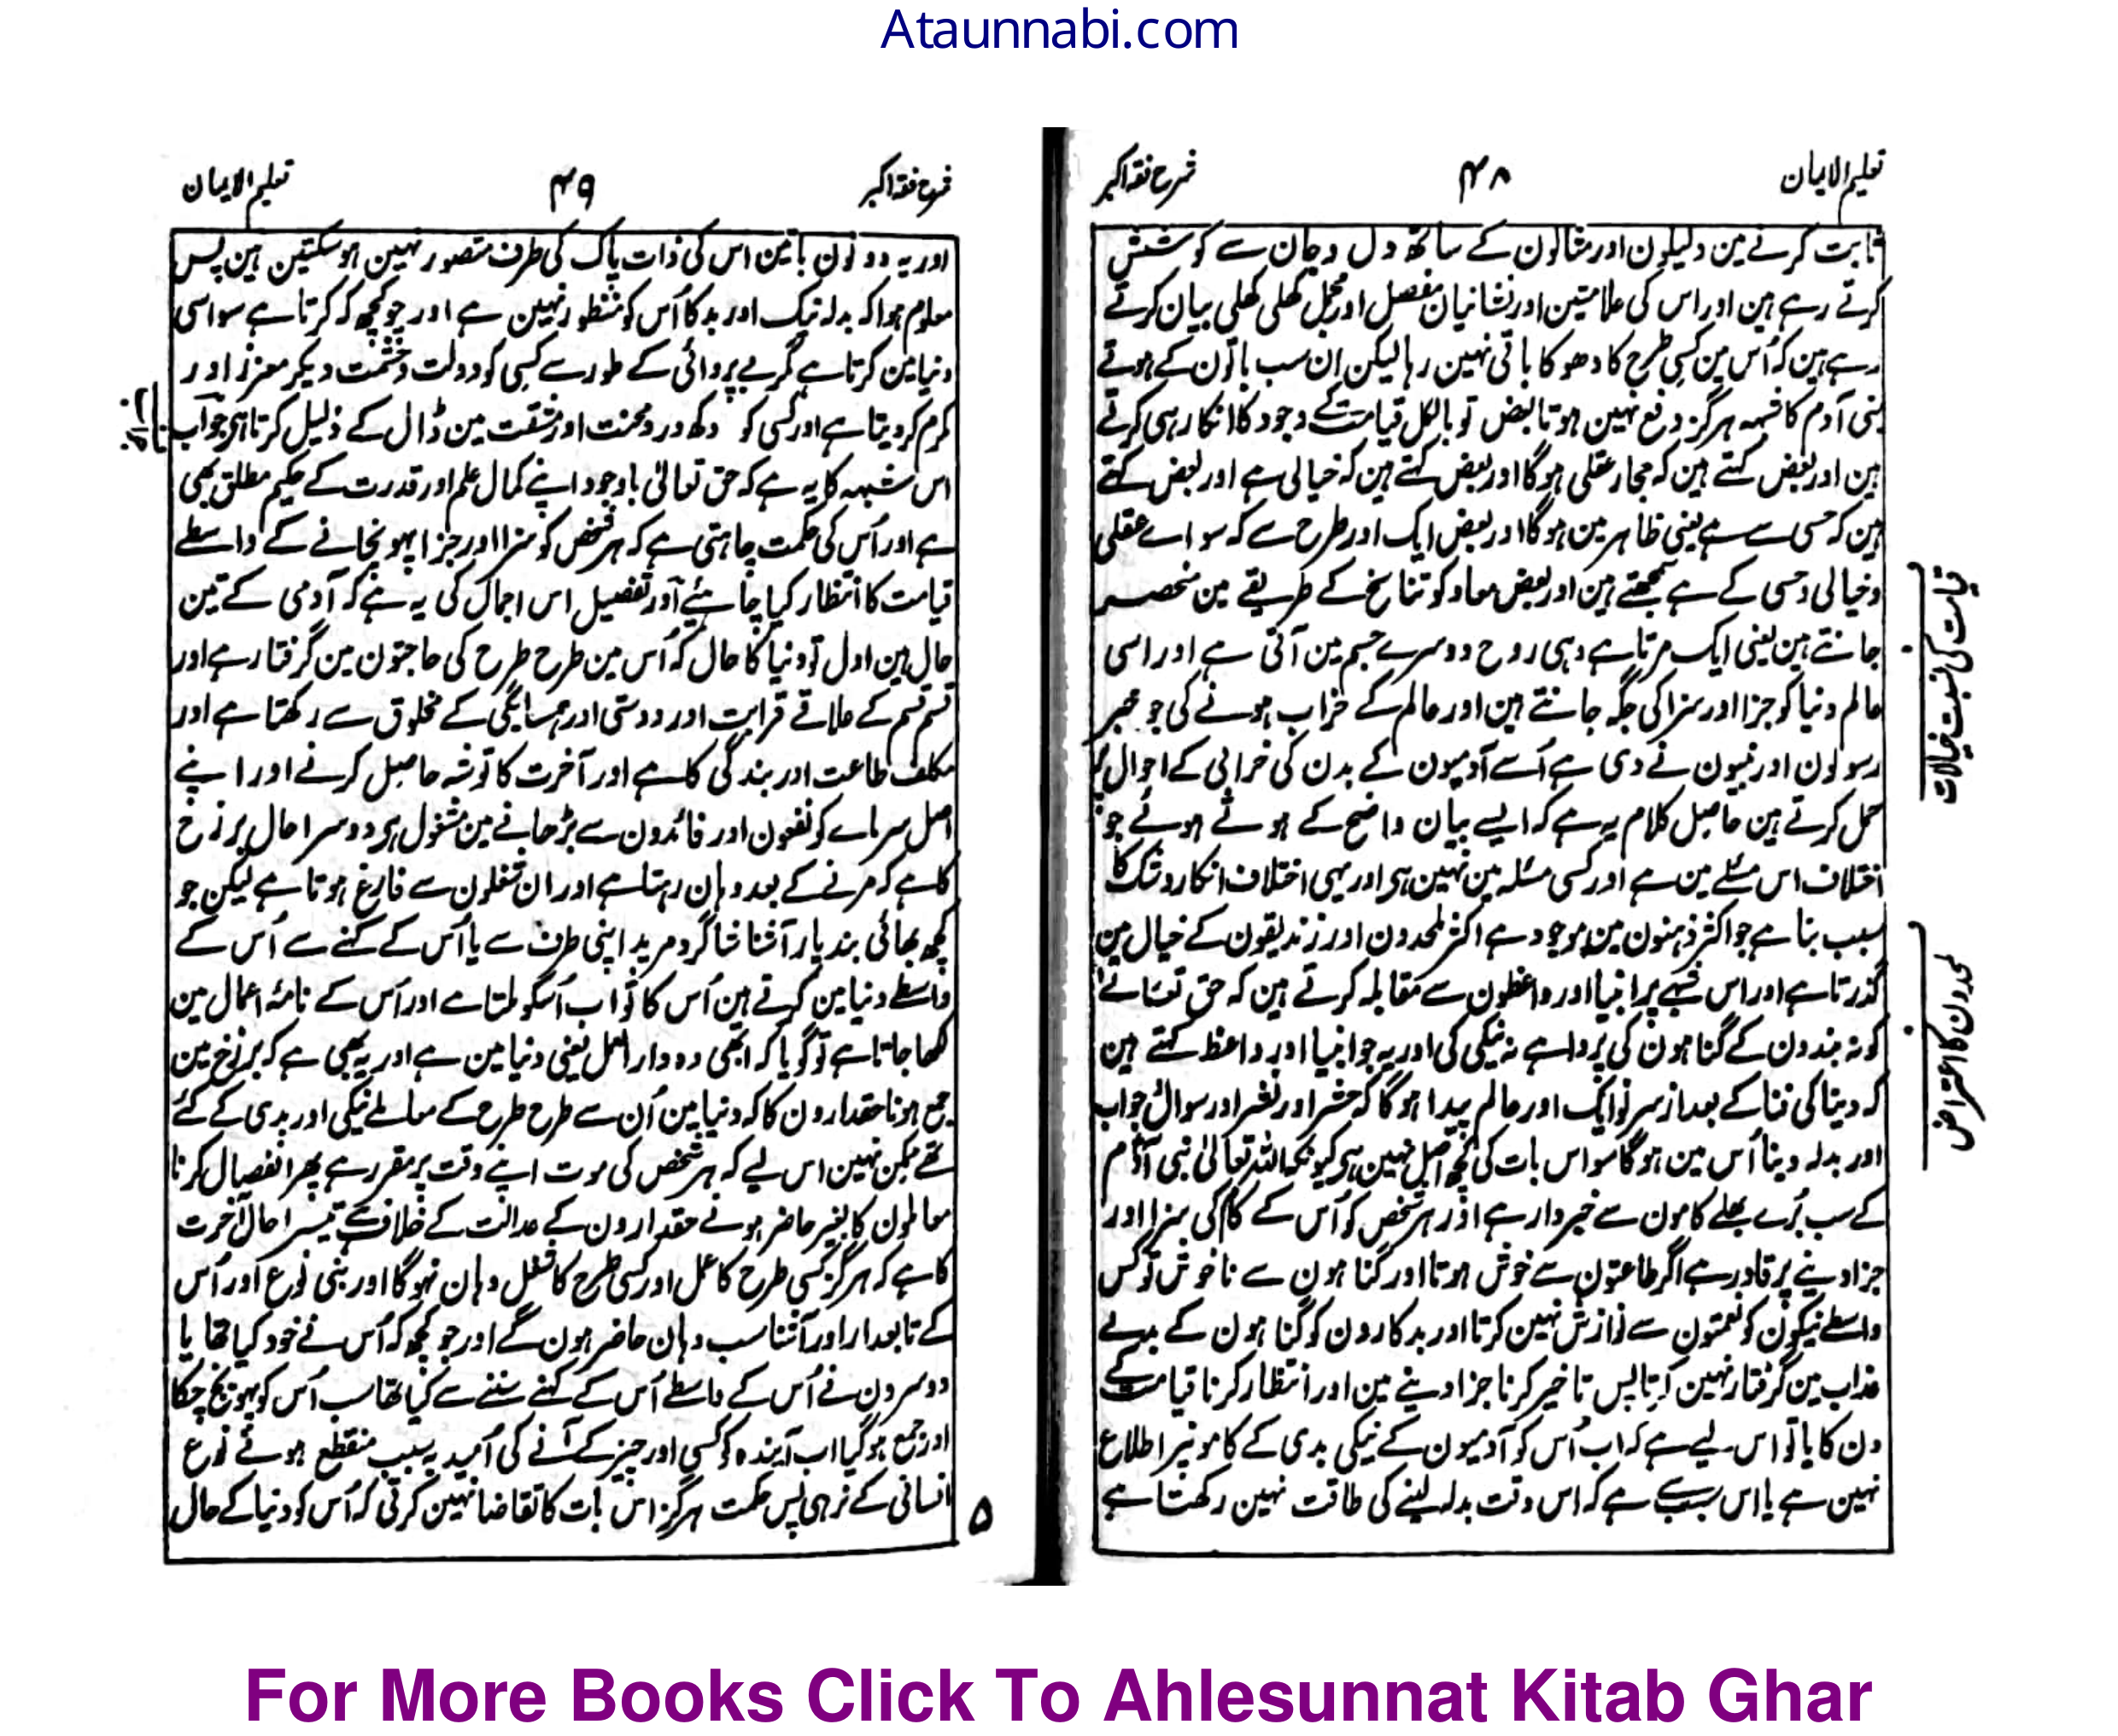 Ataunnabi.com
تعلیم الایمان
۴۸
شرح فقہ اکبر
ثابت کرنے مین دلیلون اور مثالون کے ساتھ دل وجان سے کوشش
کرتے رہے ہین اور اس کی علامتین اور نشانیان مفصل اور مجمل کھلی کھلی بیان کرتے
رہے ہین کہ اُس مین کسی طرح کا دھوکا باقی نہین رہا لیکن ان سب باتون کے ہوتے
بنی آدم کا شبہہ ہرگز دفع نہین ہوتا بعض تو بالکل قیامت کے وجود کا انکار ہی کرتے
ہین اور بعض کہتے ہین کہ مجاز عقلی ہوگا اور بعض کہتے ہین کہ خیالی ہے اور بعض کہتے
ہین کہ حسی ہے یعنی ظاہر مین ہوگا اور بعض ایک اور طرح سے کہ سواے عقلی
وخیالی وحسی کے ہے سمجھتے ہین اور بعض معاد کو تناسخ کے طریقے مین منحصر
جانتے ہین یعنی ایک مرتا ہے وہی روح دوسرے جسم مین آتی ہے اور اسی
عالم دنیا کو جزا اور سزا کی جگہ جانتے ہین اور عالم کے خراب ہونے کی جو خبر
رسولون اور نبیون نے دی ہے اُسے آدمیون کے بدن کی خرابی کے احوال پر
حمل کرتے ہین حاصل کلام یہ ہے کہ ایسے بیان واضح کے ہوتے ہوئے جو
اختلاف اس مسئلے مین ہے اور کسی مسئلہ مین نہین ہی اور یہی اختلاف انکار وشک کا
سبب بنا ہے جو اکثر ذہنون مین موجود ہے اکثر ملحدون اور زندیقون کے خیال مین
گذرتا ہے اور اس شبہے پر انبیا اور واعظون سے مقابلہ کرتے ہین کہ حق تعالے
کو نہ بندون کے گناہون کی پروا ہے نہ نیکی کی اور یہ جو انبیا اور واعظ کہتے ہین
کہ دنیا کی فنا کے بعد از سر نو ایک اور عالم پیدا ہوگا کہ حشر اور نشر اور سوال جواب
اور بدلہ دینا اُس مین ہوگا سو اس بات کی کچھ اصل نہین ہی کیونکہ اللہ تعالیٰ بنی آدم
کے سب بُرے بھلے کامون سے خبردار ہے اور ہر شخص کو اُس کے کام کی سزا اور
جزا دینے پر قادر ہے اگر طاعتون سے خوش ہوتا اور گناہون سے ناخوش تو کس
واسطے نیکون کو نعمتون سے نوازش نہین کرتا اور بدکارون کو گناہون کے بدلے
عذاب مین گرفتار نہین کرتا پس تاخیر کرنا جزا دینے مین اور انتظار کرنا قیامت کے
دن کا یا تو اس لیے ہے کہ اب اُس کو آدمیون کے نیکی بدی کے کامونپر اطلاع
نہین ہے یا اس سبب سے ہے کہ اس وقت بدلہ لینے کی طاقت نہین رکھتا ہے
قیامت کی نسبت خیالات
ملحدون کا اعتراض
شرح فقہ اکبر
۴۹
تعلیم الایمان
اور یہ دونون باتین اس کی ذات پاک کی طرف متصور نہین ہوسکتین ہین پس
معلوم ہوا کہ بدلہ نیک اور بد کا اُس کو منظور نہین ہے اور جو کچھ کہ کرتا ہے سو اسی
دنیا مین کرتا ہے مگر بے پروائی کے طور سے کسی کو دولت وحشمت دیکر معزز اور
مکرم کردیتا ہے اور کسی کو دکھ درد ومحنت اور مشقت مین ڈال کے ذلیل کرتا ہی جواب
اس شبہہ کا یہ ہے کہ حق تعالیٰ باوجود اپنے کمال علم اور قدرت کے حکیم مطلق بھی
ہے اور اُس کی حکمت چاہتی ہے کہ ہر شخص کو سزا اور جزا پہونچانے کے واسطے
قیامت کا انتظار کیا چاہئیے اور تفصیل اس اجمال کی یہ ہے کہ آدمی کے تین
حال ہین اول تو دنیا کا حال کہ اُس مین طرح طرح کی حاجتون مین گرفتار ہے اور
قسم قسم کے علاقے قرابت اور دوستی اور ہمسایگی کے مخلوق سے رکھتا ہے اور
مکلف طاعت اور بندگی کا ہے اور آخرت کا توشہ حاصل کرنے اور اپنے
اصل سرماے کو نفعون اور فائدون سے بڑھانے مین مشغول ہی دوسرا حال برزخ
کا ہے کہ مرنے کے بعد وہان رہتا ہے اور ان شغلون سے فارغ ہوتا ہے لیکن جو
کچھ بھائی بند یار آشنا شاگرد مرید اپنی طرف سے یا اُس کے کہنے سے اُس کے
واسطے دنیا مین کرتے ہین اُس کا ثواب اُسکو ملتا ہے اور اُس کے نامۂ اعمال مین
لکھا جاتا ہے تو گویا کہ ابھی وہ دار العمل یعنی دنیا مین ہے اور یہ بھی ہے کہ برزخ مین
جمع ہونا حقدارون کا کہ دنیا مین اُن سے طرح طرح کے معاملے نیکی اور بدی کے کئے
تھے ممکن نہین اس لیے کہ ہر شخص کی موت اپنے وقت پر مقرر ہے پھر انفصال کرنا
معاملون کا بغیر حاضر ہونے حقدارون کے عدالت کے خلاف ہے تیسرا حال آخرت
کا ہے کہ ہرگز کسی طرح کا عمل اور کسی طرح کا شغل وہان نہوگا اور بنی نوع اور اُس
کے تابعدار اور آشنا سب وہان حاضر ہون گے اور جو کچھ کہ اُس نے خود کیا تھا یا
دوسرون نے اُس کے واسطے اُس کے کہنے سننے سے کیا تھا سب اُس کو پہونچ چکا
اور جمع ہوگیا اب آیندہ کو کسی اور چیز کے آنے کی اُمید بہ سبب منقطع ہوئے نوع
انسانی کے نرہی پس حکمت ہرگز اس بات کا تقاضا نہین کرتی کہ اُس کو دنیا کے حال
۵
For More Books Click To Ahlesunnat Kitab Ghar